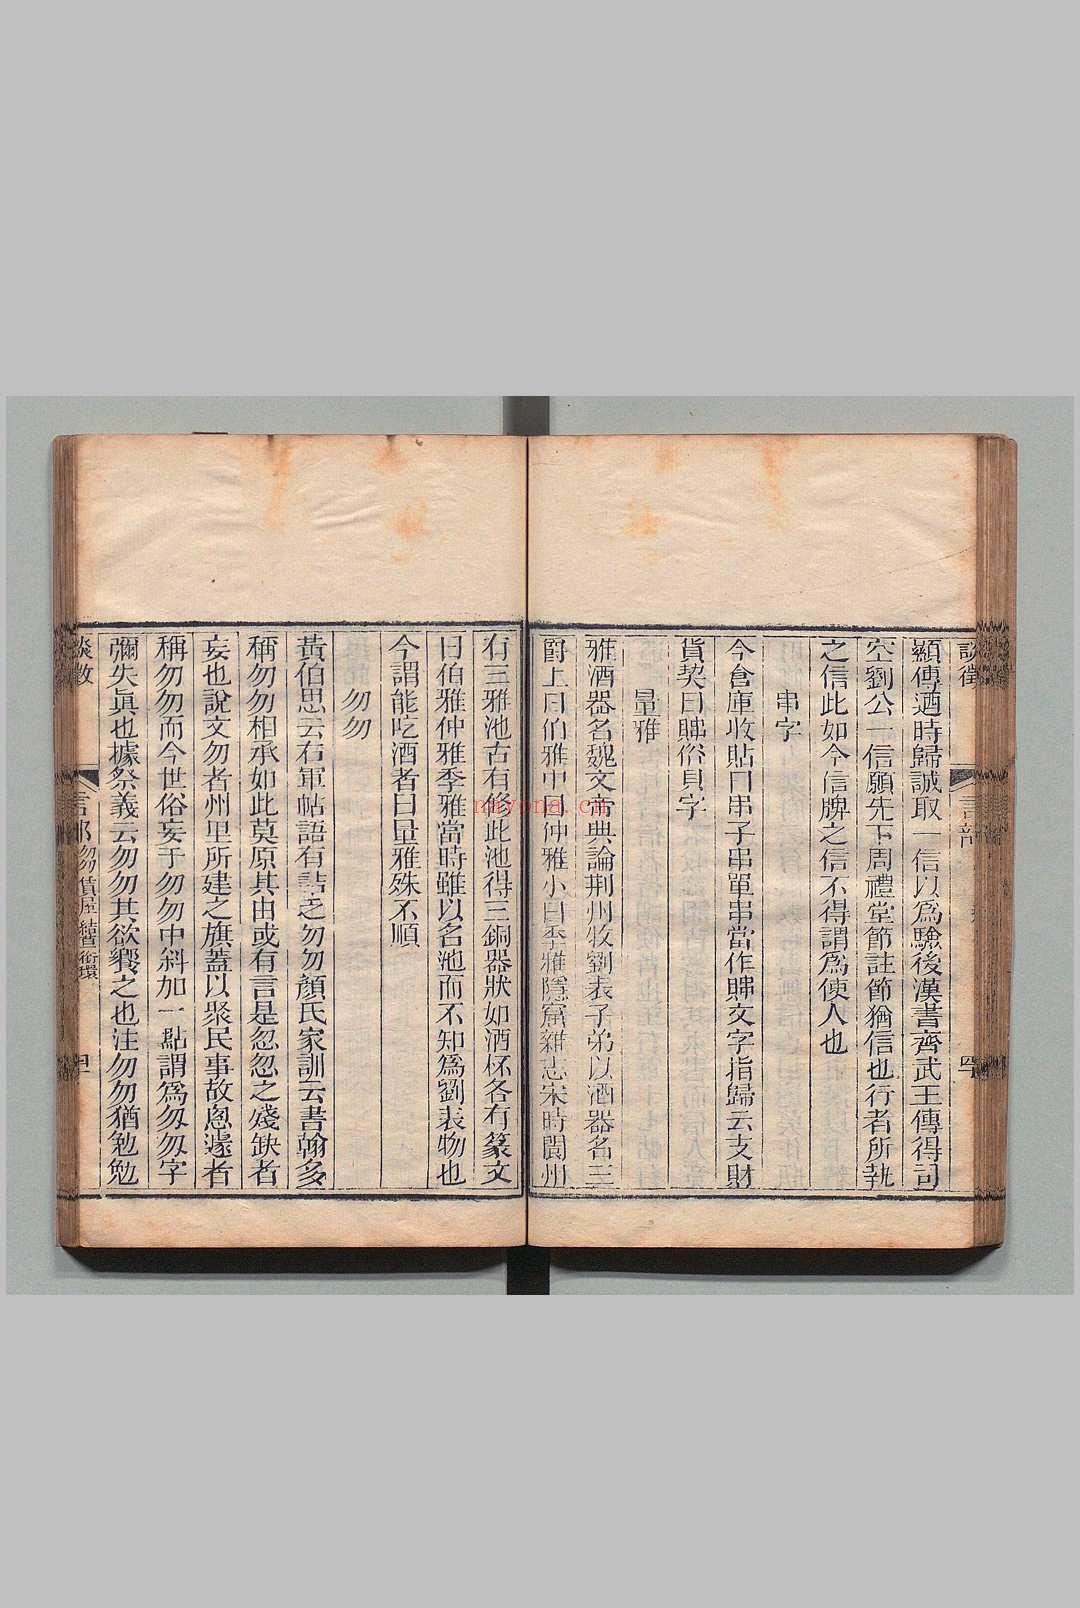 談徵
言部
顯傳遒時歸誠取一信以為驗後漢書齊武王傳得司
空劉公一信願先下周禮堂節註節猶信也行者所執
之信此如今信牌之信不得謂為使人也
串字
今倉庫收貼曰串子串單串當作賗文字指歸云支財
貨契曰賗俗貝字
量雅
雅酒器名魏文帝典論荆州牧劉表子弟以酒器名三
爵上曰伯雅中曰仲雅小曰季雅隱窟雜志宋時閬州
有三雅池古有修此池得三銅器狀如酒杯各有篆文
曰伯雅仲雅季雅當時雖以名池而不知為劉表物也
今謂能吃酒者曰量雅殊不順
勿勿
黃伯思云右軍帖語有詰之勿勿顏氏家訓云書翰多
稱勿勿相承如此莫原其由或有言是忽忽之殘缺者
妄也說文勿者州里所建之旗蓋以聚民事故悤遽者
稱勿勿而今世俗妄于勿勿中斜加一點謂為匆匆字
彌失眞也據祭義云勿勿其欲饗之也注勿勿猶勉勉
談徵
言部
勿勿 賃屋 結草銜環
nnyona.cn